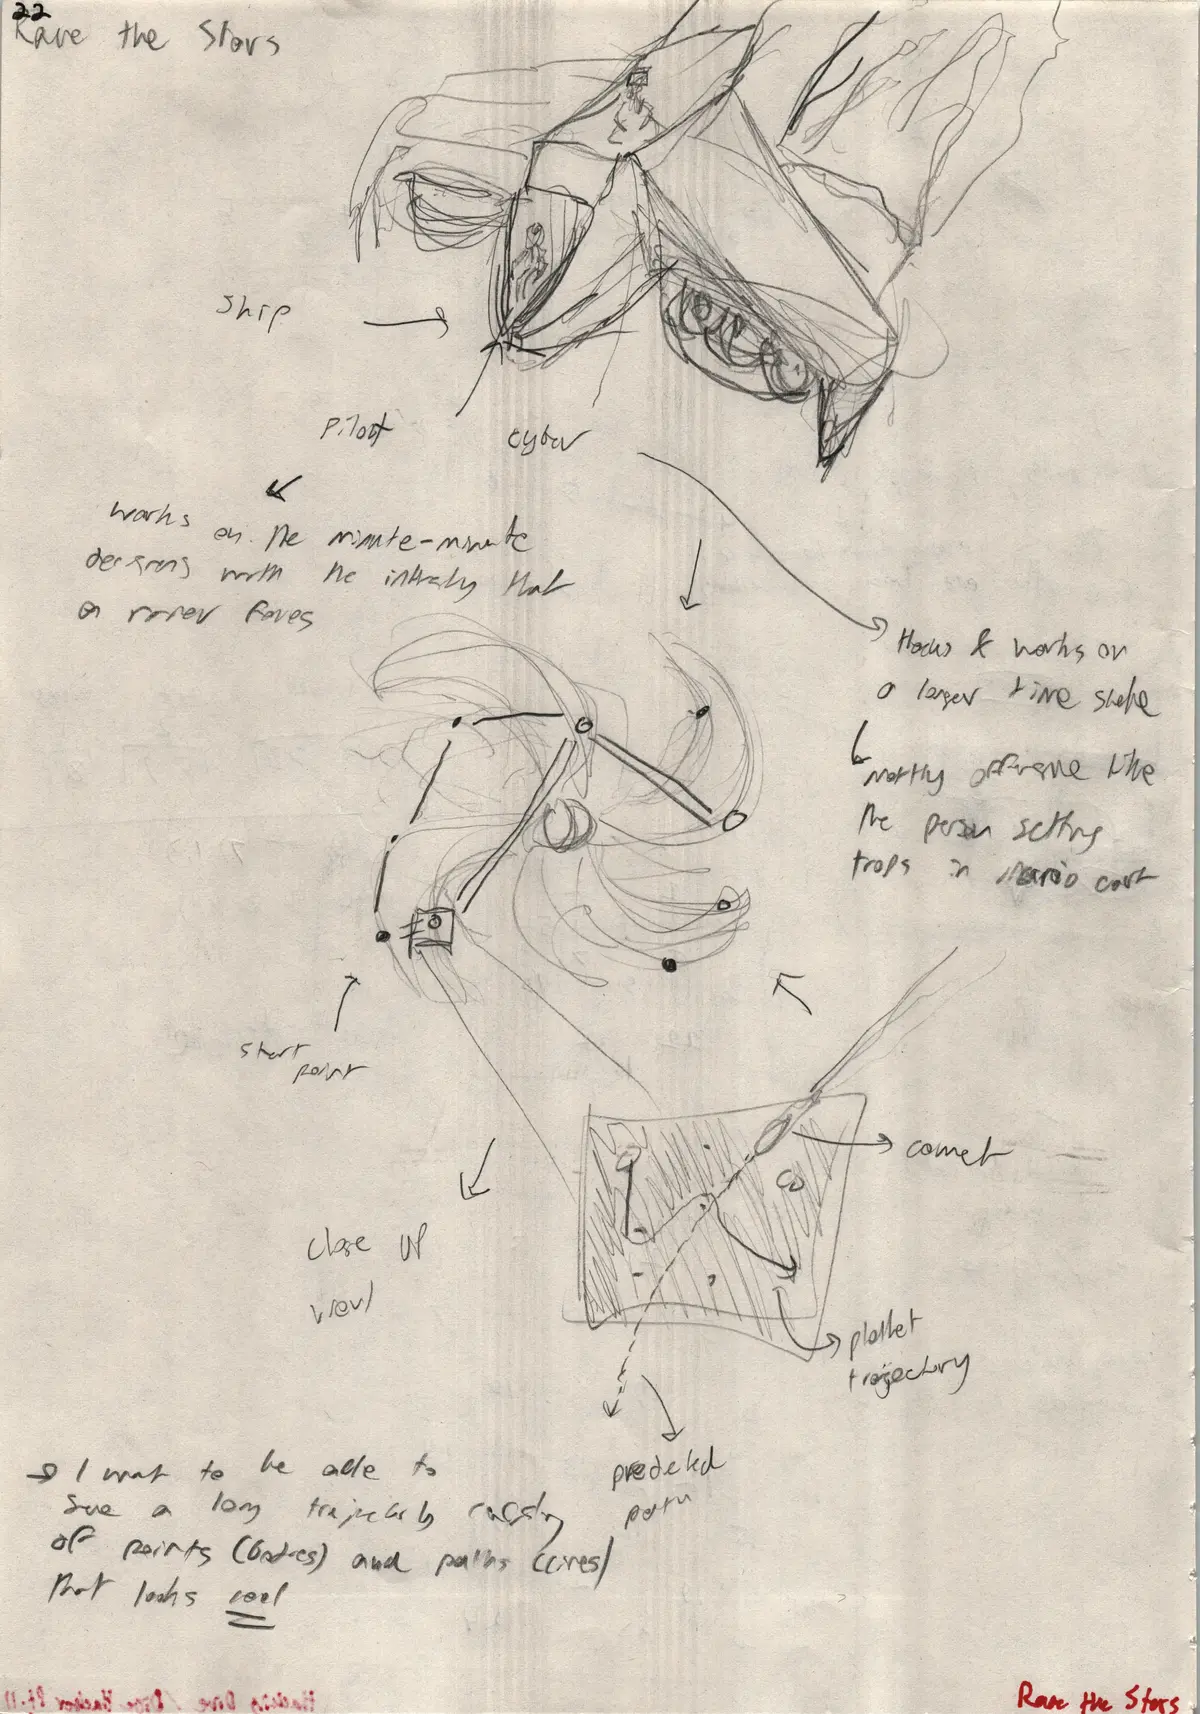 22
Race the Stars
Ship
Pilot
cyber
works on the minute-minute
decisions with the that
a racer faces
Hacks & works on
a larger time
mostly offensive like
the person setting
traps in Mario cart
start
point
comet
close up
view
planet
trajectory
predicted
path
→ I want to be able to
see a long trajectory
of points (bodies) and paths (lines)
that looks cool
Race the Stars